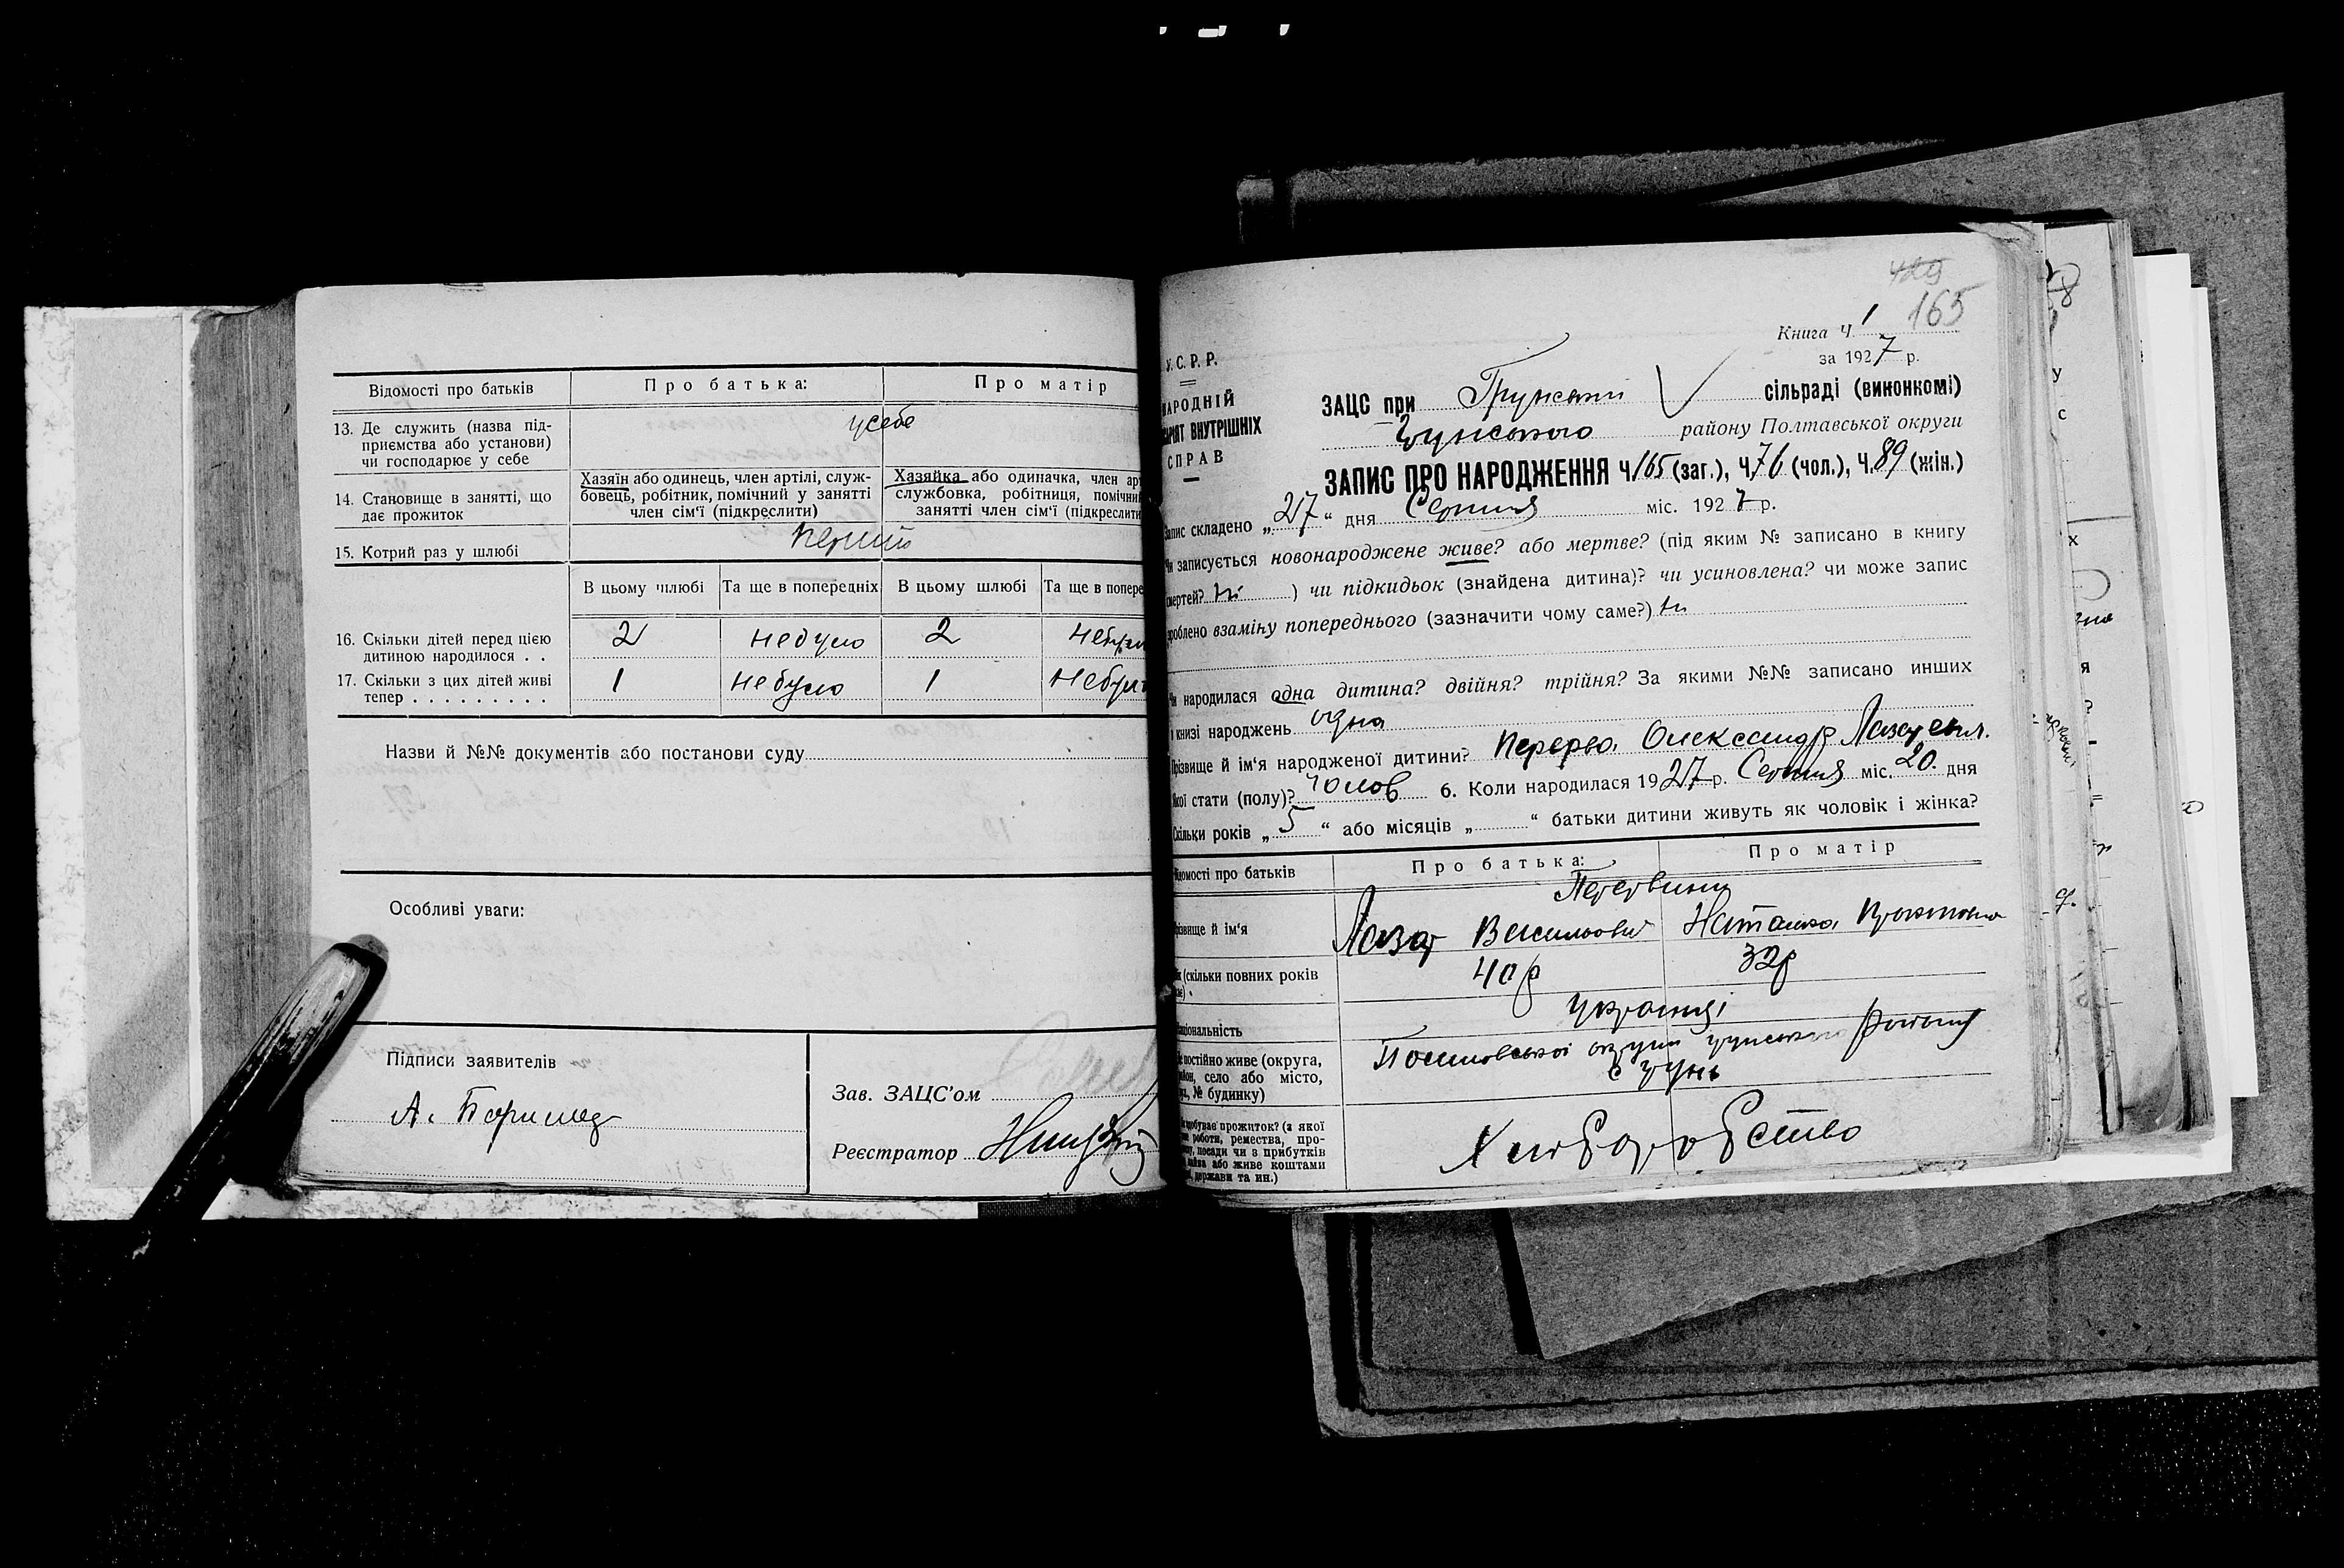 Відомості про батьків
Про батька:
Про матір
13. Де служить (назва під-
приємства або установи)
чи господарює у себе
усебе
14. Становище в занятті, що
дає прожиток
Хазяїн або одинець, член артілі, служ-
бовець, робітник, помічний у занятті
член сім'ї (підкреслити)
Хазяйка або одиначка, член арт
службовка, робітниця, помічни
занятті член сім'ї (підкреслити
15. Котрий раз у шлюбі
перший
В цьому шлюбі
Та ще в попередніх
В цьому шлюбі
Та ще в попере
16. Скільки дітей перед цією
дитиною народилося . .
2 небуло 2
17. Скільки з цих дітей живі
тепер . . . . . . . . .
1 небуло 1
Назви й №№ документів або постанови суду
Особливі уваги:
Підписи заявителів
А.
Зав. ЗАЦС'ом
Реєстратор
429
165
Книга Ч 1
за 1927 р.
У.С.Р.Р.
АРОДНІЙ
РІЯТ ВНУТРІШНІХ
СПРАВ
ЗАЦС при Грунській сільраді (виконкомі)
Грунського району Полтавської округи
ЗАПИС ПРО НАРОДЖЕННЯ Ч 165 (заг.), Ч. 76 (чол.), Ч. 89 (жін.)
Запис складено „27“ дня Серпня міс. 1927 р.
Чи записується новонароджене живе? або мертве? (під яким № записано в книгу
смертей? ні ) чи підкидьок (знайдена дитина)? чи усиновлена? чи може запис
зроблено взаміну попереднього (зазначити чому саме?) ні
Чи народилася одна дитина? двійня? трійня? За якими №№ записано инших
в книзі народжень одна
Прізвище й ім'я народженої дитини? Перерва Олександр
Якої стати (полу)? чолов 6. Коли народилася 1927 р. Серпня міс. 20 дня
Скільки років „5“ або місяців „ “ батьки дитини живуть як чоловік і жінка?
Відомості про батьків
Про батька:
Про матір
Прізвище й ім'я
Лазар Васильович Наталка
к (скільки повних років
40р 32р
Національність
українці
постійно живе (округа,
район, село або місто,
№ будинку)
Полтавської округи грунського району
с Грунь
здобуває прожиток? (з якої
роботи, ремества, про-
посади чи з прибутків
або живе коштами
держави та ин.)
Хліборобство